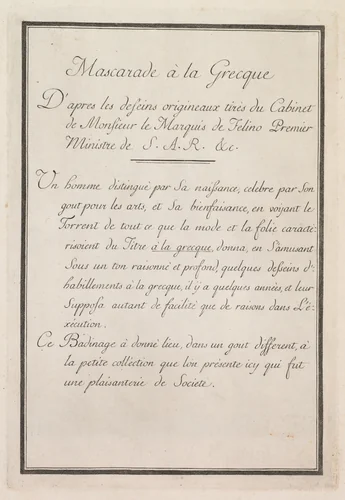 Mascarade à la Grecque
D'apres les desseins origineaux tirés du Cabinet
de Monsieur le Marquis de Felino Premier
Ministre de S. A. R. &c.
Un homme distingué par Sa naissance, celebre par Son
gout pour les arts, et Sa bienfaisance, en voyant le
Torrent de tout ce que la mode et la folie caracte
risoient du Titre à la grecque, donna, en S'amusant
Sous un ton raisonné et profond, quelques desseins d'
habillements à la grecque, il y a quelques années, et leur
Supposa autant de facilité que de raisons dans L'é-
xécution.
Ce Badinage à donné lieu, dans un gout different, à
la petite collection que l'on présente icy qui fut
une plaisanterie de Societe.